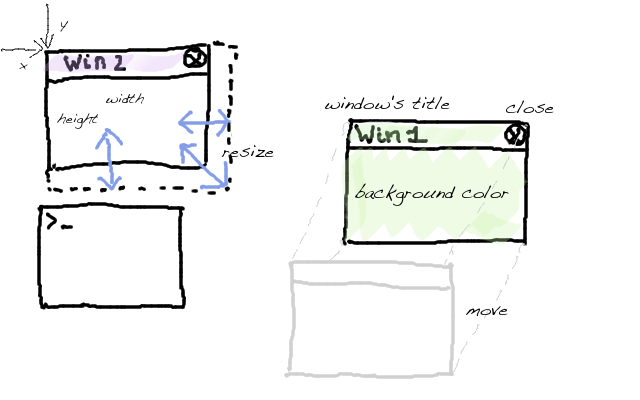 y
x
Win 2
width
height
resize
>_
window's title
close
Win 1
background color
move